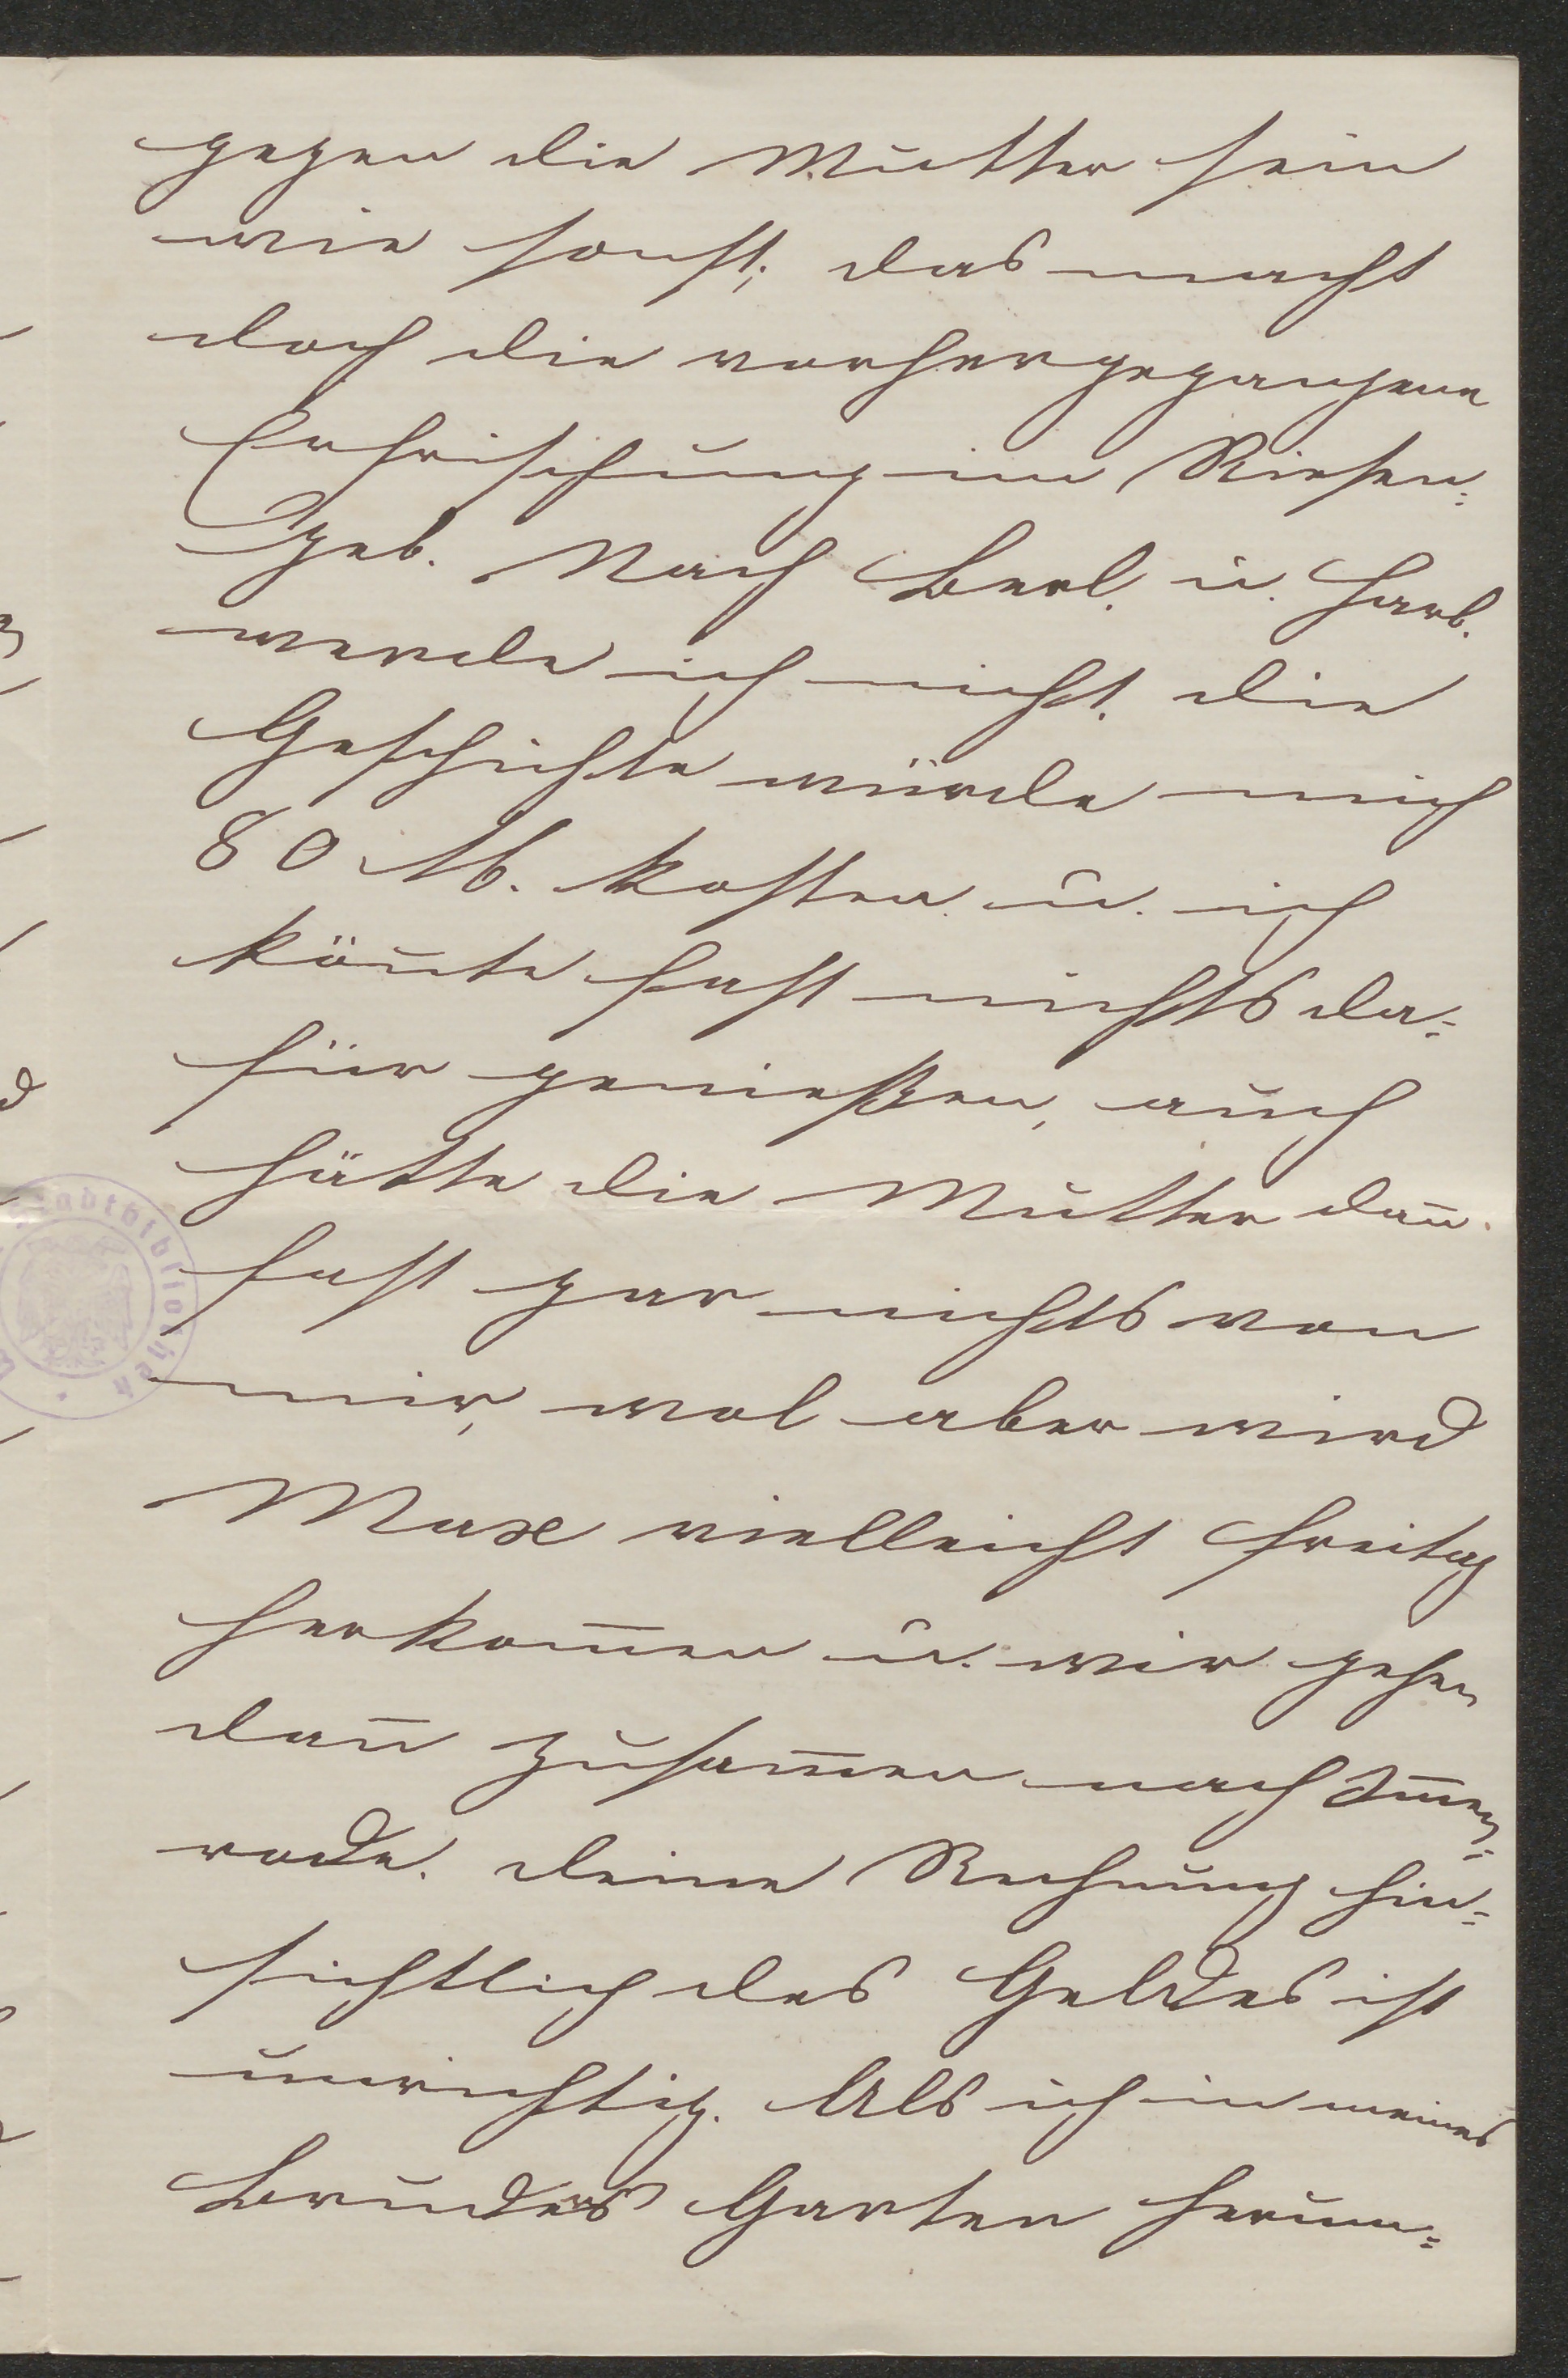 gegen die Mutter sein
wie sonst; das macht
doch die vorhergegangene
Erfrischung im Riesen=
geb. Nach Berl. u. Harb.
werde ich nicht. die
Geschichte würde mich
80 M. kosten u. ich
kön̄te fast nichts da=
für genießen, auch
hätte die Mutter dan̄
fast gar nichts von
mir, wol aber wird
Max vielleicht Freitag
herkom̄en u. wir gehen
dan̄ zusam̄en nach Im̄en=
rode. Deine Rechnung hin=
sichtlich des Geldes ist
unrichtig. Als ich in meines
Bruders Garten herum=
Stadtbibliothek